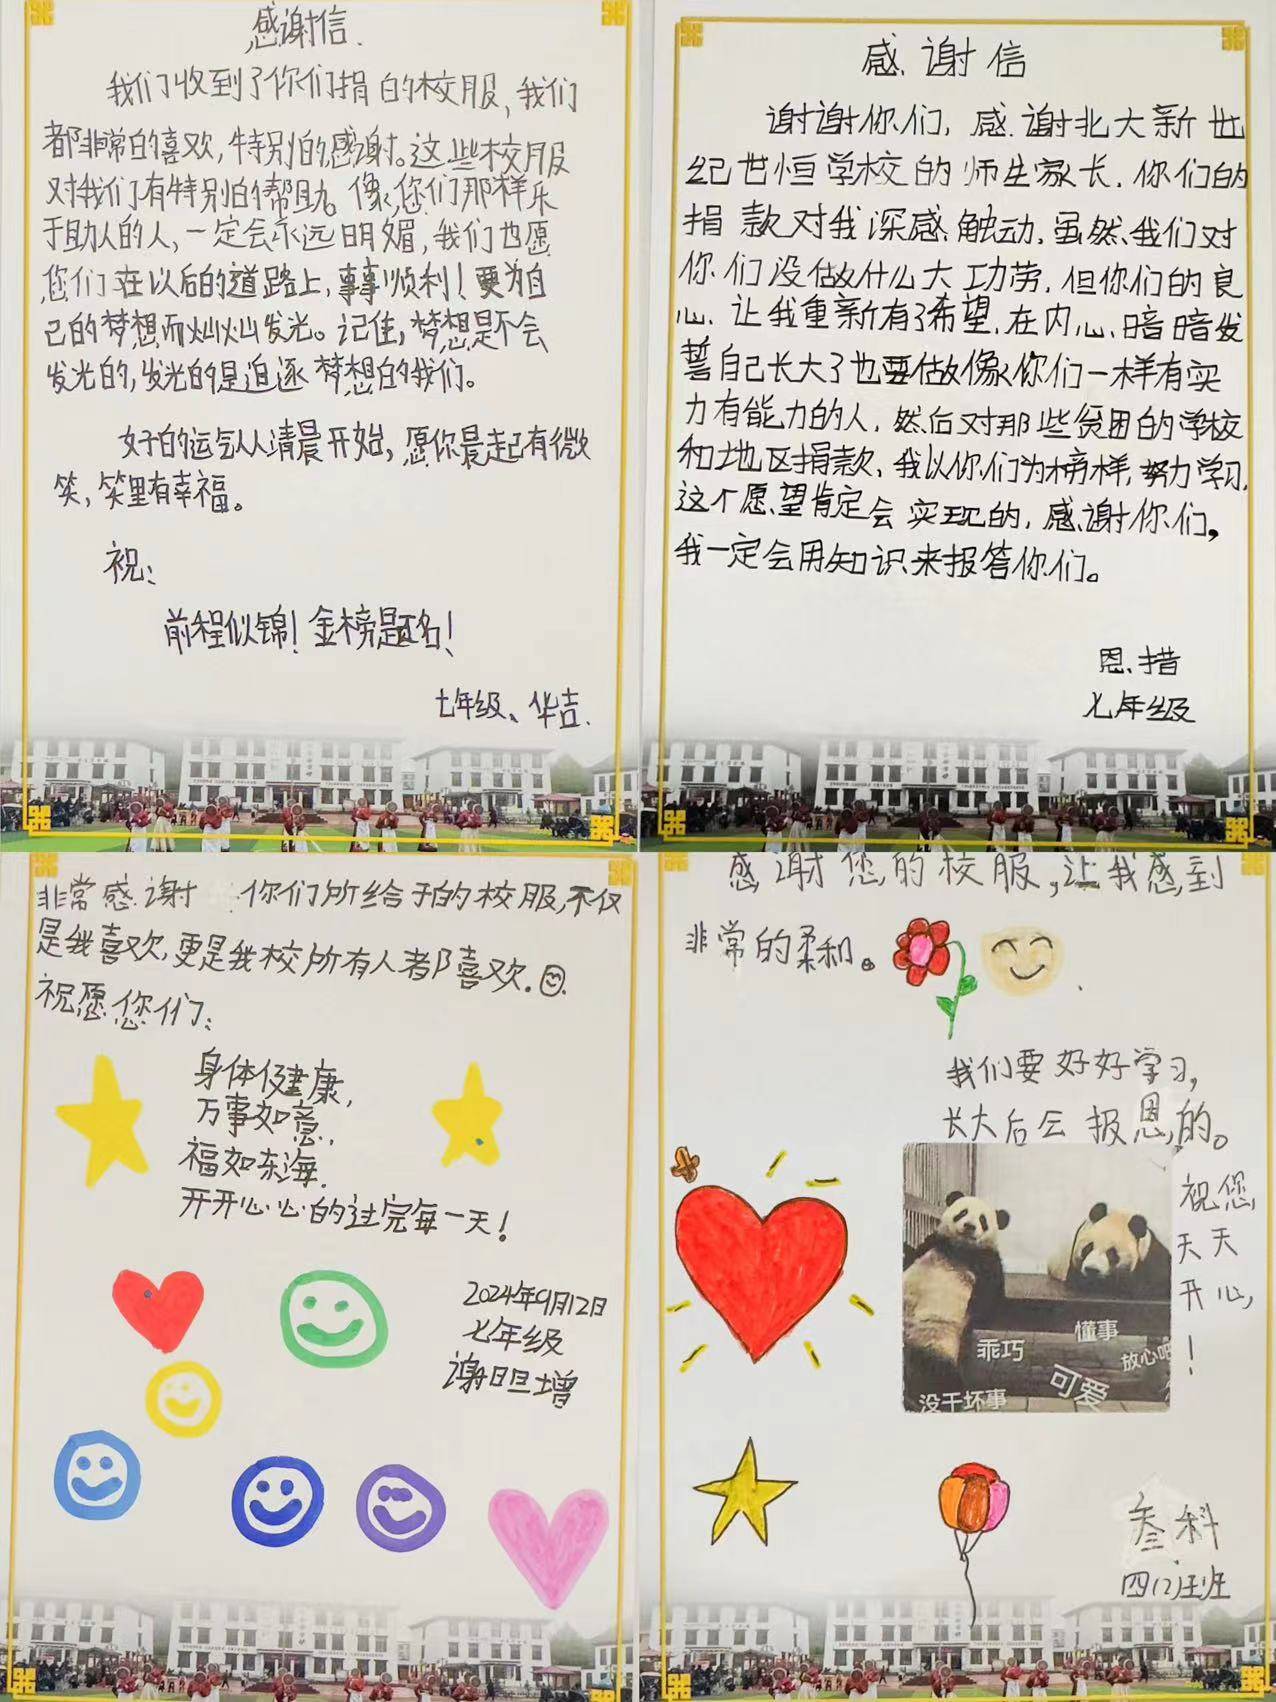 感谢信
我们收到了你们捐的校服，我们
都非常的喜欢，特别的感谢。这些校服
对我们有特别的帮助。像您们那样乐
于助人的人，一定会永远明媚，我们也愿
您们在以后的道路上，事事顺利！要为自
己的梦想而灿灿发光。记住，梦想是不会
发光的，发光的是追逐梦想的我们。
好的运气从清晨开始，愿你晨起有微
笑，笑里有幸福。
祝：
前程似锦！金榜题名！
七年级、华吉
感谢信
谢谢你们，感谢北大新世
纪世恒学校的师生家长，你们的
捐款对我深感触动，虽然我们对
你们没做什么大功劳，但你们的良
心，让我重新有了希望，在内心暗暗发
誓自己长大了也要做像你们一样有实
力有能力的人，然后对那些贫困的学校
和地区捐款，我以你们为榜样，努力学习，
这个愿望肯定会实现的，感谢你们，
我一定会用知识来报答你们。
恩措
七年级
非常感谢 你们所给于的校服，不仅
是我喜欢，更是我校所有人者阝喜欢。
祝愿您们：
身体健康，
万事如意，
福如东海，
开开心心的过完每一天！
2024年9月12日
七年级
谢旦增
感谢您的校服，让我感到
非常的柔和。
我们要好好学习，
长大后会报恩的。
祝您
天天
开心
！
乖巧
懂事
放心吧
可爱
没干坏事
叁科
四(2)班